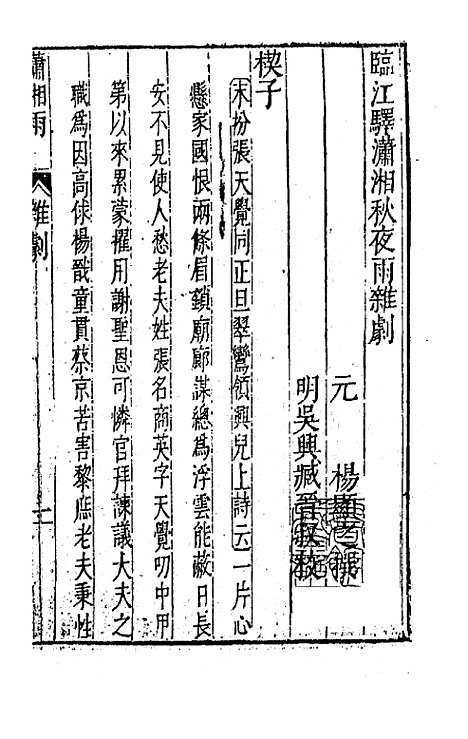 臨江驛瀟湘秋夜雨雜劇
元　楊顯之撰
明吳興臧晉叔校
楔子
末扮張天覺同正旦翠鸞領興兒上詩云一片心
懸家國恨兩條眉鎖廟廊謀總為浮雲能蔽日長
安不見使人愁老夫姓張名商英字天覺叨中甲
第以來累蒙擢用謝聖恩可憐官拜諫議大夫之
職爲因高俅楊戩童貫蔡京苦害黎庶老夫秉性
瀟湘雨　雜劇　一